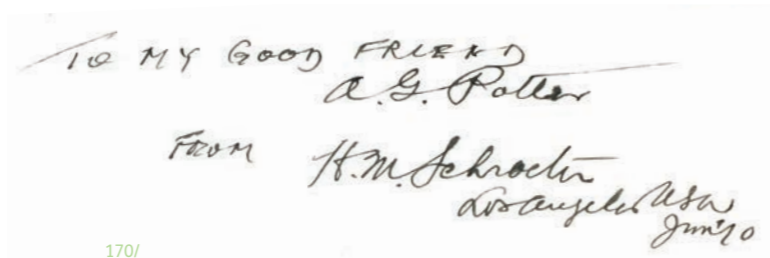 TO MY GOOD FRIEND
A. G. Potter
FROM H. M. Schroeter
Los Angeles USA
Jun' 10
170/